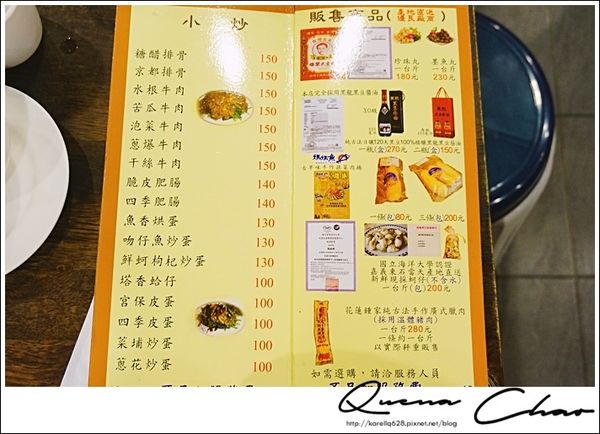 小 炒
糖醋排骨 150
京都排骨 150
水根牛肉 150
苦瓜牛肉 150
泡菜牛肉 150
蔥爆牛肉 150
干絲牛肉 150
脆皮肥腸 140
四季肥腸 140
魚香烘蛋 130
吻仔魚炒蛋 130
鮮蚵枸杞炒蛋 130
塔香蛤仔 100
宮保皮蛋 100
四季皮蛋 100
菜埔炒蛋 100
蔥花炒蛋 100
販售商品(產地直送 優良廠商)
珍珠丸
一台斤
180元
墨魚丸
一台斤
230元
本店完全採用黑龍黑豆醬油
純古法日曬120天黑豆100%精釀黑龍黑豆蔭油
一瓶(盒)270元
二瓶(盒)150元
古早味手作蔬菜肉捲
一條(包)80元
三條(包)200元
國立海洋大學認證
嘉義東石當天產地直送
新鮮現採蚵仔(不含水)
一台斤(包)200元
花蓮鍾家純古法手作廣式臘肉
(採用溫體豬肉)
一台斤280元
一條約一台斤
以實際秤重販售
如需選購，請洽服務人員
Quena Chao
http://karellq628.pixnet.net/blog